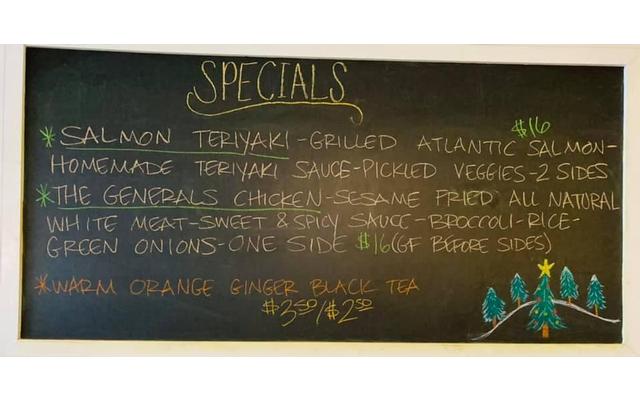 SPECIALS
$16
*SALMON TERIYAKI-GRILLED ATLANTIC SALMON-
HOMEMADE TERIYAKI SAUCE-PICKLED VEGGIES-2 SIDES
*THE GENERALS CHICKEN-SESAME FRIED ALL NATURAL
WHITE MEAT-SWEET & SPICY SAUCE-BROCCOLI-RICE-
GREEN ONIONS-ONE SIDE $16(GF BEFORE SIDES)
*WARM ORANGE GINGER BLACK TEA
$3.50/$2.50